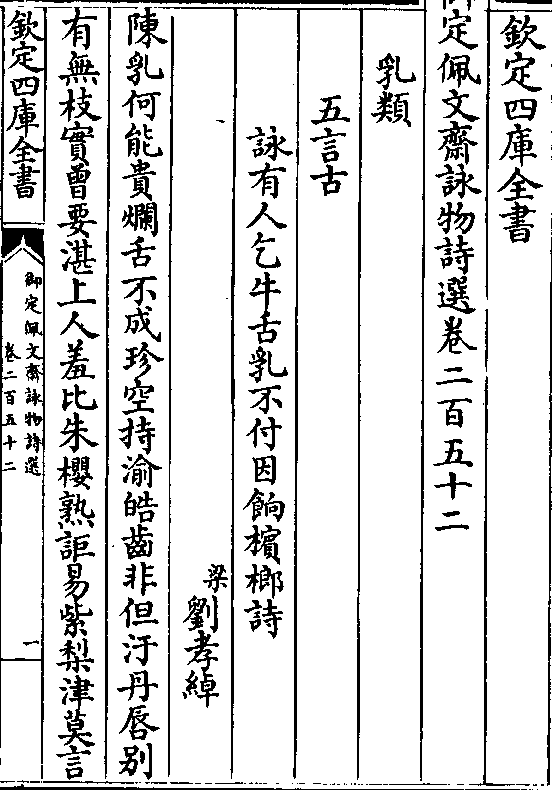 欽定四庫全書
御定佩文齋詠物詩選卷二百五十二
乳類
五言古
詠有人乞牛舌乳不付因餉檳榔詩
梁劉孝綽
陳乳何能貴爛舌不成珍空持渝皓齒非但汙丹唇别
有無枝實曾要湛上人羞比朱櫻熟詎易紫梨津莫言
欽定四庫全書
御定佩文齋詠物詩選
卷二百五十二
一